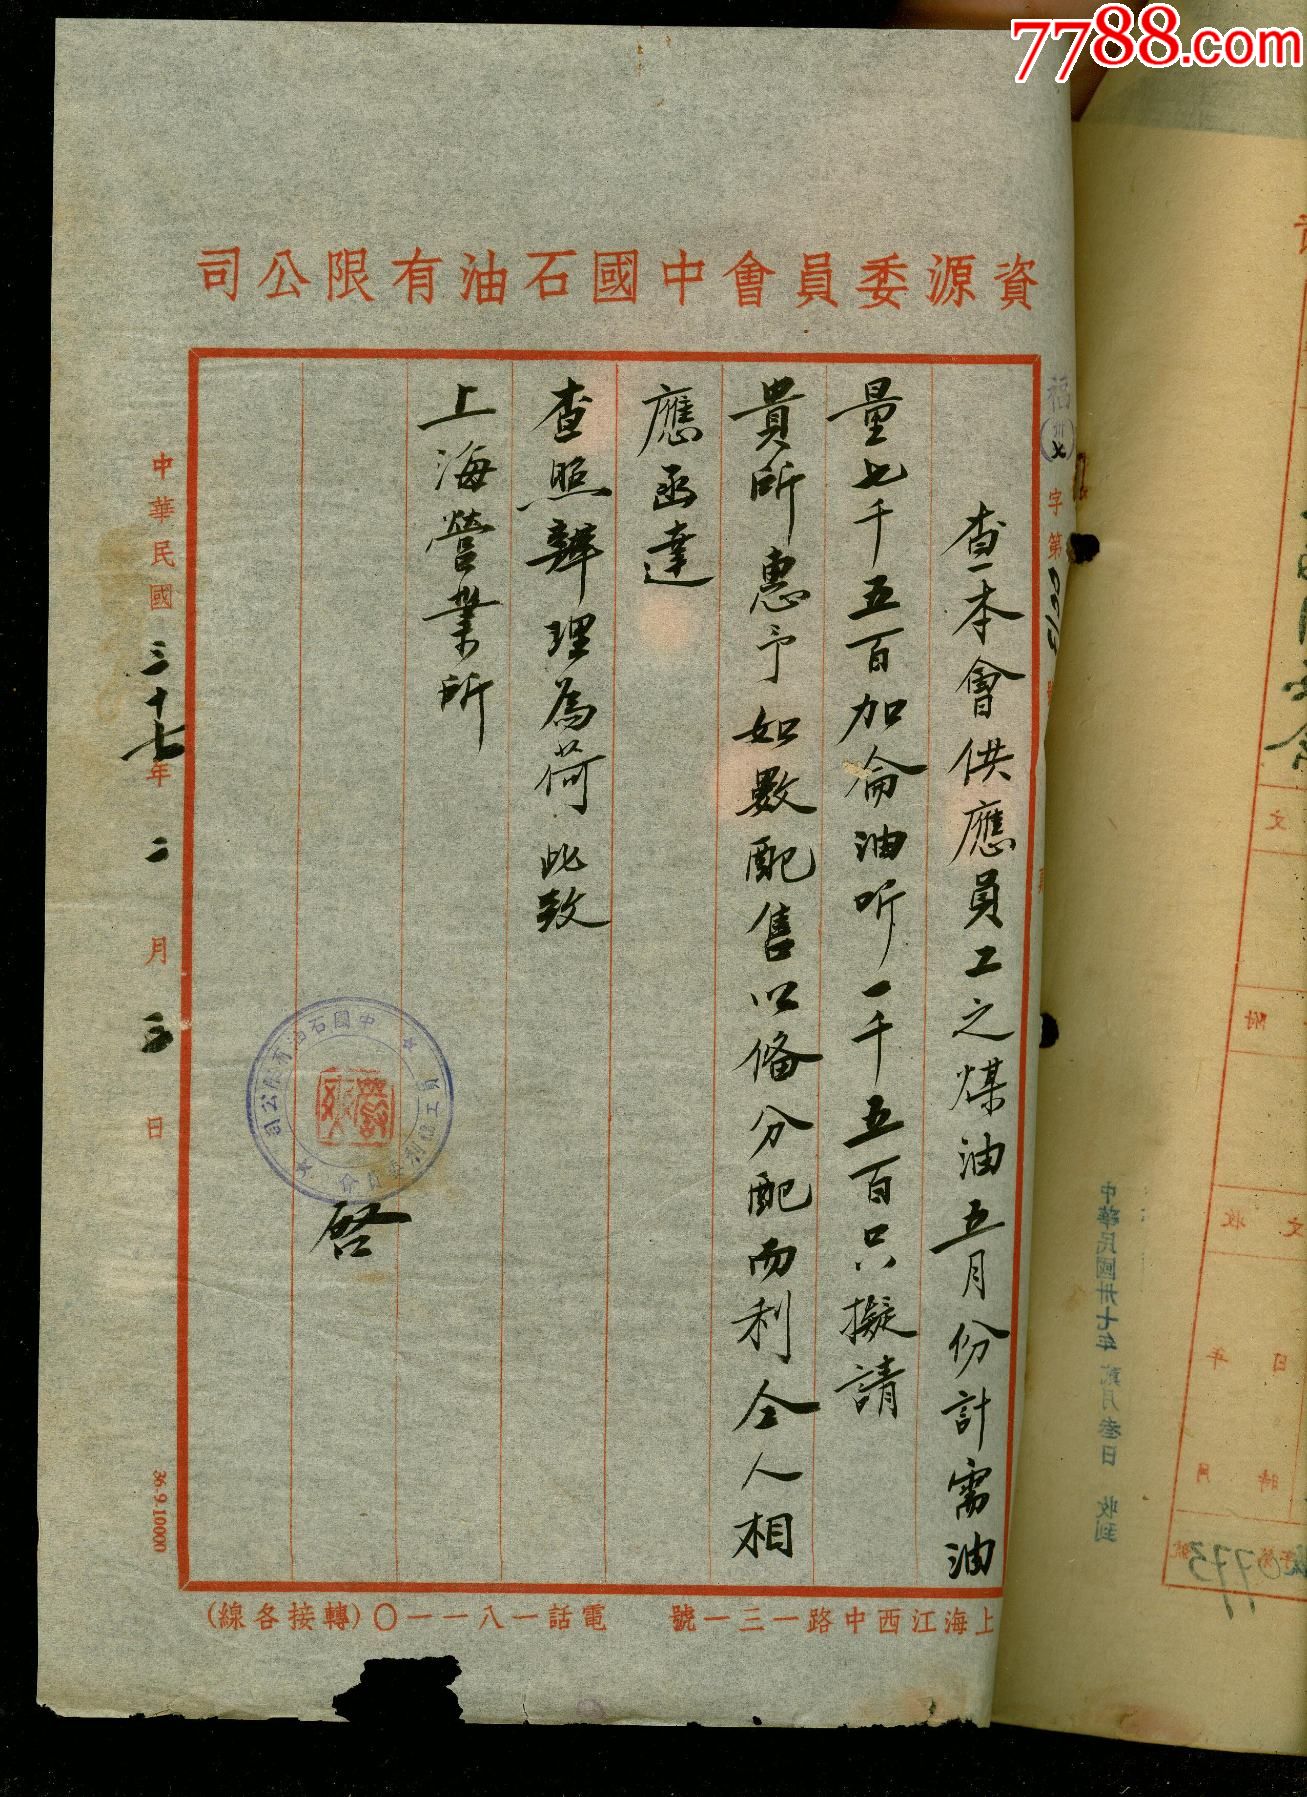 7788.com
資源委員會中國石油有限公司
福(卅七)字第
查本會供應員工之煤油五月份計需油
量七千五百加侖油听一千五百只擬請
貴所惠予如數配售以俻分配而利仝人相
應函達
查照辦理為荷此致
上海營業所
中國石油有限公司員工福利委員會
啓
中華民國三十七年二月三日
36.9.10000
上海江西中路一三一號 電話一八一一〇(轉接各線)
中華民國卅七年貳月叁日 收到
文
附
收文
773